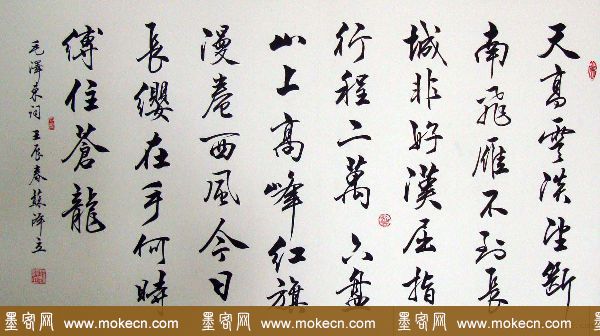 天高雲淡望斷
南飛雁不到長
城非好漢屈指
行程二萬 六盤
山上高峰紅旗
漫卷西風今日
長纓在手何時
縛住蒼龍
毛澤東词 壬辰春 蘇澤立
墨客网 www.mokecn.com 墨客网 www.mokecn.com 墨客网 www.mokecn.com 墨客网 www.mokecn.com